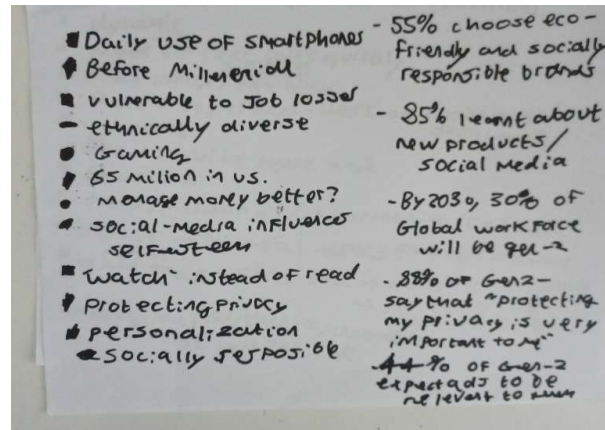 Daily use of smartphones
Before Millenerial
vulnerable to Job losses
ethnically diverse
Gaming
65 milion in us.
manage money better?
social-media influences
self-esteem
Watch instead of read
protecting privacy
personalization
socially resposible
- 55% choose eco-
friendly and socially
responsible brands
- 85% learnt about
new products/
social media
- By 2030, 30% of
Global workforce
will be gen-z
- 88% of Gen z-
say that "protecting
my privacy is very
important to me"
- 44% of Gen-z
expect ads to be
relevant to